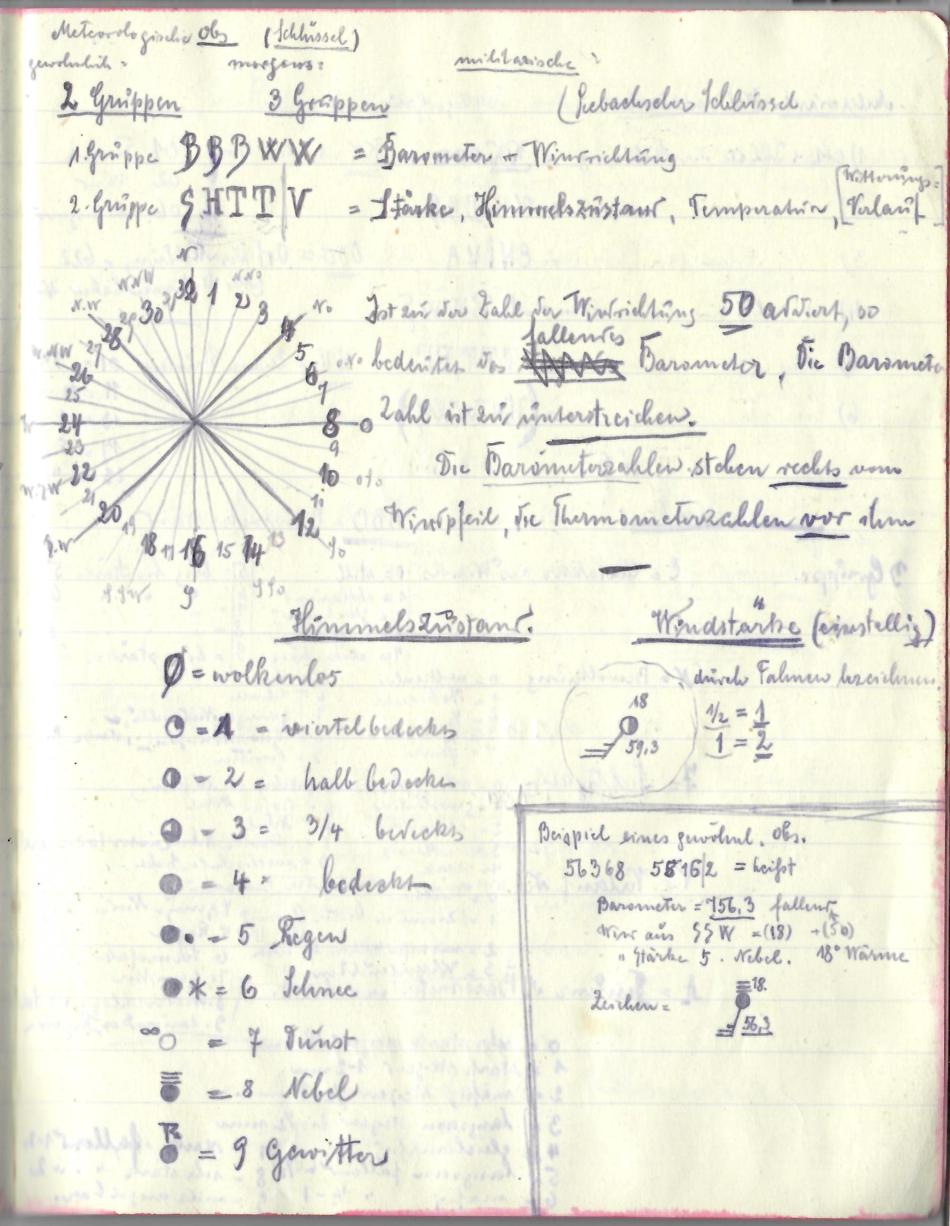 Meteorologische Obs (Schlüssel)
gewöhnlich = morgens: militärische:
2 Gruppen 3 Gruppen (Seebachscher Schlüssel
1. Gruppe BBBWW = Barometer + Windrichtung
2. Gruppe SHTT|V = Stärke, Himmelszustand, Temperatur, [Witterungs=
Verlauf]
N
N.N.W N.NO
N.W 30 31 32 1 2 3 N.O
28 29 4
W.N.W 27 5
26 6 O.N.O
25 7
W 24 8 O
23 9
W.S.W 22 10 O.S.O
21 11
S.W 20 12 S.O
19 18 17 16 15 14 13
S.S.W S S.S.O
Ist zu der Zahl der Windrichtung 50 addiert, so
fallendes
bedeutet das Barometer, Die Barometer
Zahl ist zu unterstreichen.
Die Barometerzahlen stehen rechts vom
Windpfeil, die Thermometerzahlen vor ihm
Himmelszustand.
0 = wolkenlos
= 1 = viertelbedeckt
= 2 = halb bedeckt
= 3 = 3/4 bedeckt
= 4 = bedeckt
= 5 Regen
* = 6 Schnee
∞ = 7 Dunst
≡ = 8 Nebel
= 9 Gewitter
Windstärke (einstellig)
durch Fahnen bezeichnen
18
59,3
1/2 = 1
1 = 2
Beispiel eines gewöhnl. Obs.
56368 58 16|2 = heißt
Barometer = 756,3 fallend
Wind aus SSW = (18) + (50)
" Stärke 5. Nebel. 18° Wärme
Zeichen = ≡ 18.
56,3